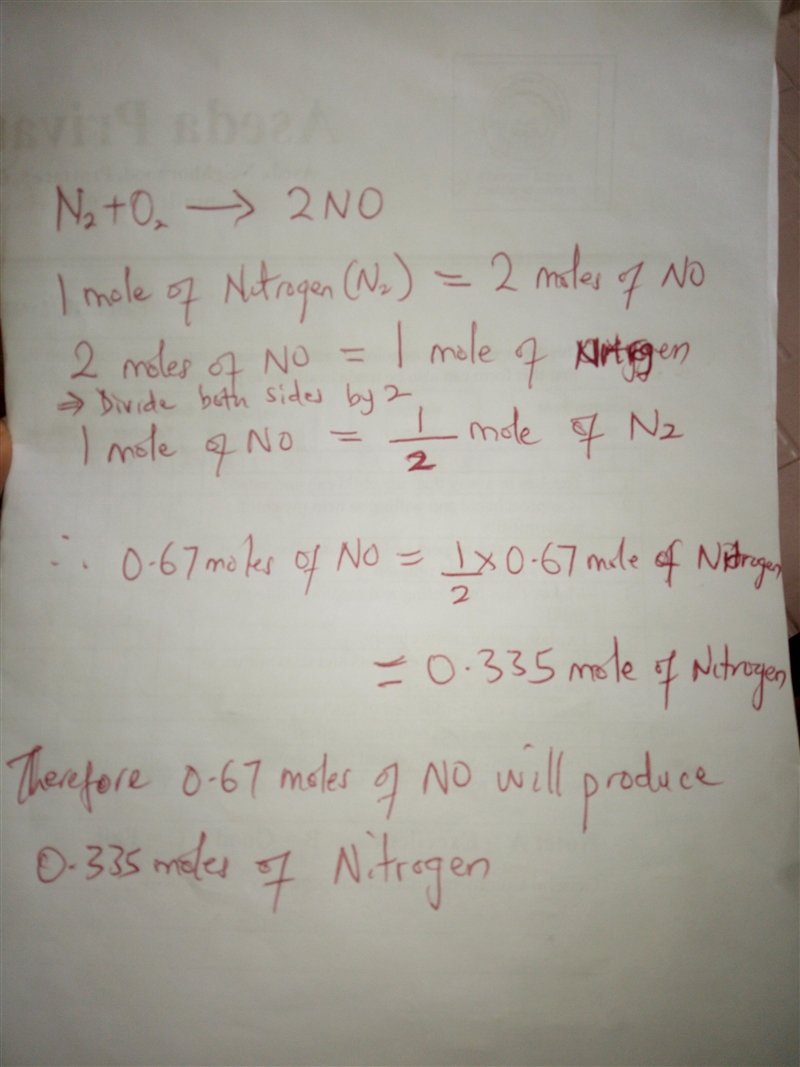 Aseda Privat
N₂+O₂ → 2NO
1 mole of Nitrogen(N₂) = 2 moles of NO
2 moles of NO = 1 mole of Nitrogen
⇒ Divide both sides by 2
1 mole of NO = 1/2 mole of N2
∴ 0.67 moles of NO = 1/2 × 0.67 mole of Nitrogen
= 0.335 mole of Nitrogen
Therefore 0.67 moles of NO will produce
0.335 moles of Nitrogen